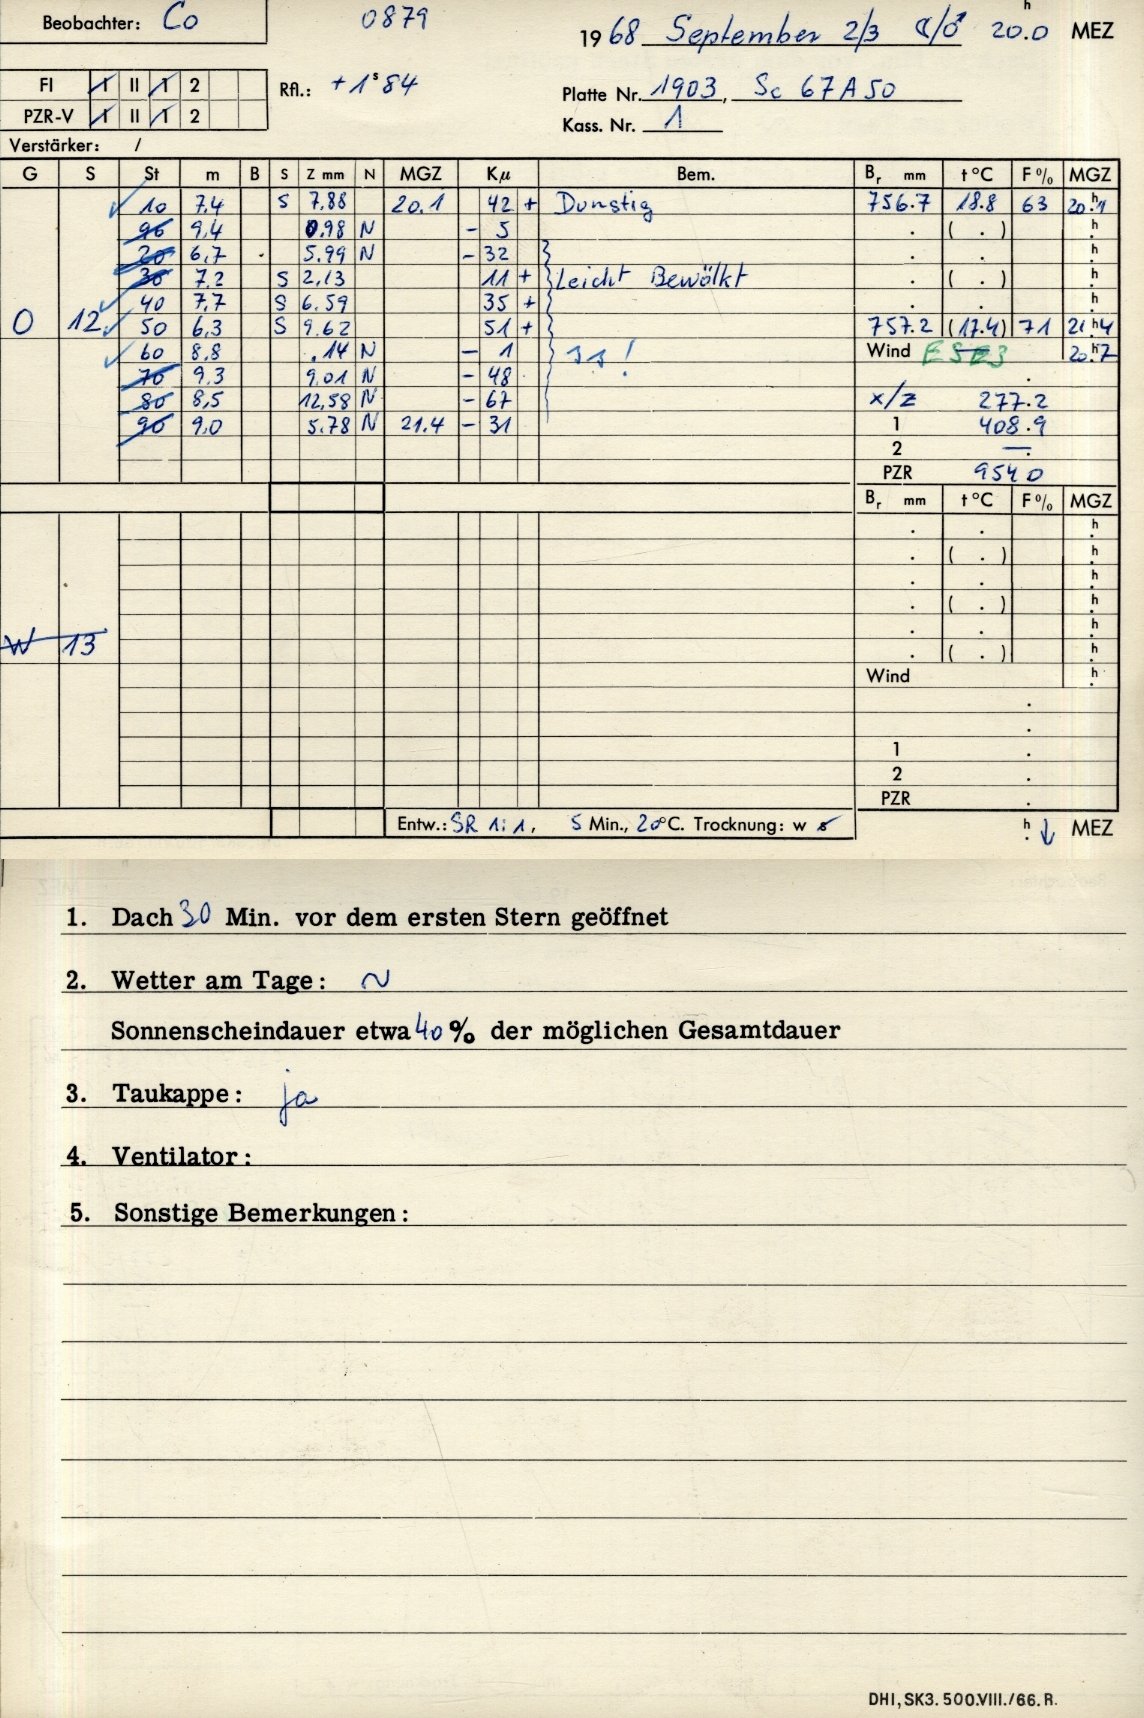 Beobachter: Co 0879 19 68 September 2/3 ☾/♂ 20.0 h MEZ
FI I II 1 2 Rfl.: +1 s 84 Platte Nr. 1903, Sc 67A50
PZR-V I II 1 2 Kass. Nr. 1
Verstärker: /
G S St m B S Z mm N MGZ Kμ Bem. Br mm t °C F % MGZ
10 7.4 S 7.88 20.1 42 + Dunstig 756.7 18.8 63 20 h 1
9,4 0.98 N - 5 . ( . ) h
20 6,7 5.99 N - 32 . . h
30 7.2 S 2,13 11 + Leicht Bewölkt . ( . ) h
40 7,7 S 6.59 35 + . . h
O 12 50 6,3 S 9.62 51 + 757.2 (17.4) 71 21 h 4
60 8.8 .14 N - 1 Wind 20 h 7
70 9.3 9,01 N - 48 .
80 8,5 12,58 N - 67 x/z 277.2
90 9,0 5.78 N 21.4 - 31 1 408.9
2 —.
PZR 954 0
Br mm t °C F % MGZ
. . h
. ( . ) h
. . h
. ( . ) h
. . h
W 13 . ( . ) h
Wind h
.
.
1 .
2 .
PZR .
Entw.: SR 1:1, 5 Min., 20 °C. Trocknung: w s h ↓ MEZ
1. Dach 30 Min. vor dem ersten Stern geöffnet
2. Wetter am Tage: ~
Sonnenscheindauer etwa 40 % der möglichen Gesamtdauer
3. Taukappe: ja
4. Ventilator:
5. Sonstige Bemerkungen:
DHI, SK3. 500.VIII./66. R.